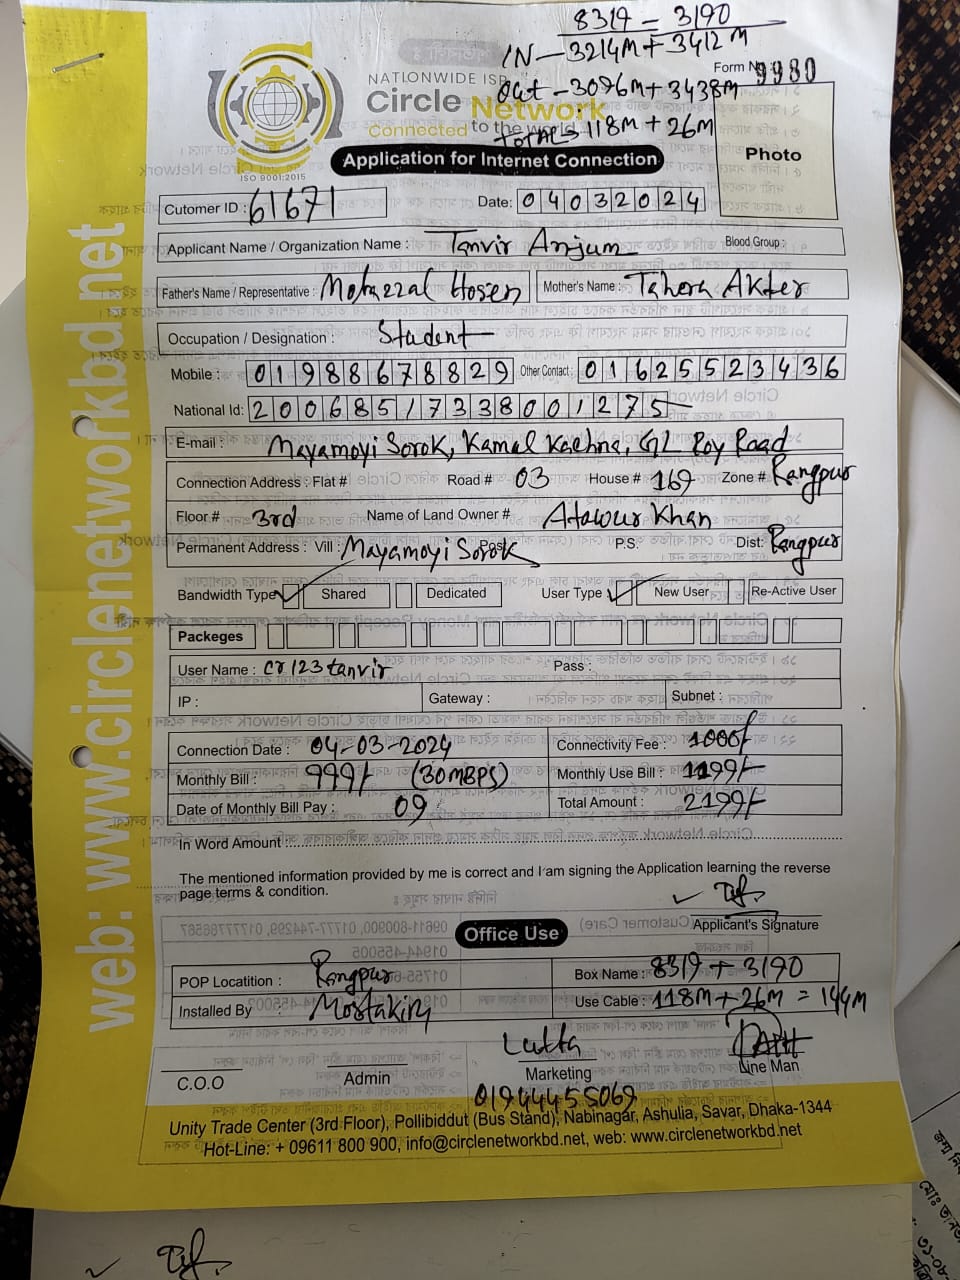 8319 – 3190
IN – 3214M + 3412M
Out – 3096M + 3438M
TOTAL = 118M + 26M
Form No 9980
NATIONWIDE ISP
Circle Network
Connected to the world
ISO 9001:2015
Application for Internet Connection
Photo
Cutomer ID : 61671
Date: 04032024
Applicant Name / Organization Name : Tanvir Anjum Blood Group :
Father's Name / Representative : Hosen Mother's Name : Tahera Akter
Occupation / Designation : Student
Mobile : 01988678829 Other Contact : 01625523436
National Id: 20068517338001275
E-mail : Mayamoyi Sorok, Kamal Kachna, GL Roy Road
Connection Address : Flat # Road # 03 House # 169 Zone # Rangpur
Floor # 3rd Name of Land Owner # Atawur Khan
Permanent Address : Vill : Mayamoyi Sorok Post P.S. Dist: Rangpur
Bandwidth Type Shared Dedicated User Type New User Re-Active User
Packeges
User Name : cr123tanvir Pass :
IP : Gateway : Subnet :
Connection Date : 04-03-2024 Connectivity Fee : 1000/-
Monthly Bill : 999/- (30MBPS) Monthly Use Bill : 1199/-
Date of Monthly Bill Pay : 09 Total Amount : 2199/-
In Word Amount
The mentioned information provided by me is correct and I am signing the Application learning the reverse
page terms & condition.
Applicant's Signature
Office Use
POP Locatition : Rangpur Box Name : 8319 + 3190
Installed By : Mostakim Use Cable : 118M + 26M = 144M
C.O.O Admin Marketing Line Man
01944455069
Unity Trade Center (3rd Floor), Pollibiddut (Bus Stand), Nabinagar, Ashulia, Savar, Dhaka-1344
Hot-Line: + 09611 800 900, info@circlenetworkbd.net, web: www.circlenetworkbd.net
web: www.circlenetworkbd.net